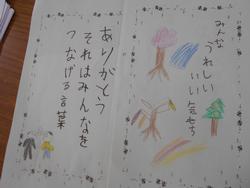 みんな
うれしい
いい気もち
ありがとう
それはみんなを
つなげる言葉